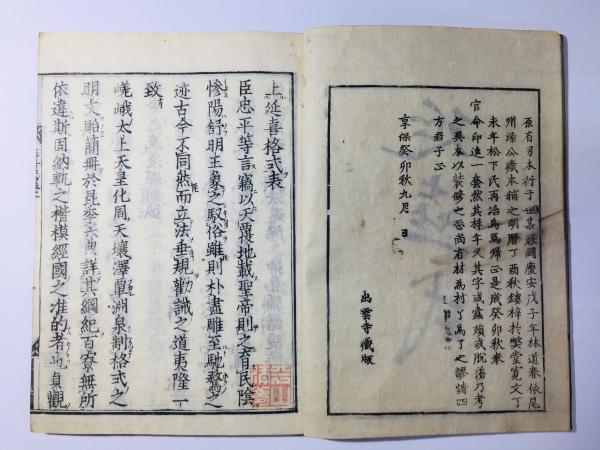 慶安戊子年林道春依尾
州源公藏本補之明曆丁酉秋鏤梓於弊堂寬文丁
未年松下氏再治烏焉歸正是歲癸卯秋奉
官命印進一套然其梓年久其字或蠹損或脫落乃考
之異本以裝修之恐尚有材為村了為丫之謬請四
方君子正
享保癸卯秋九月 日
出雲寺藏版
上延喜格式表
臣忠平等言竊以天覆地載聖帝則之育民陰
慘陽舒明王象之馭俗雖則朴盡雕至馳騖之
迹古今不同然而立法垂規勸誡之道夷隆一
致
嵯峨太上天皇化周天壤澤單淵泉制格式之
明文貽簡冊於昆季六典詳其綱紀百寮無所
依違斯固納軌之楷模經國之准的者也貞觀